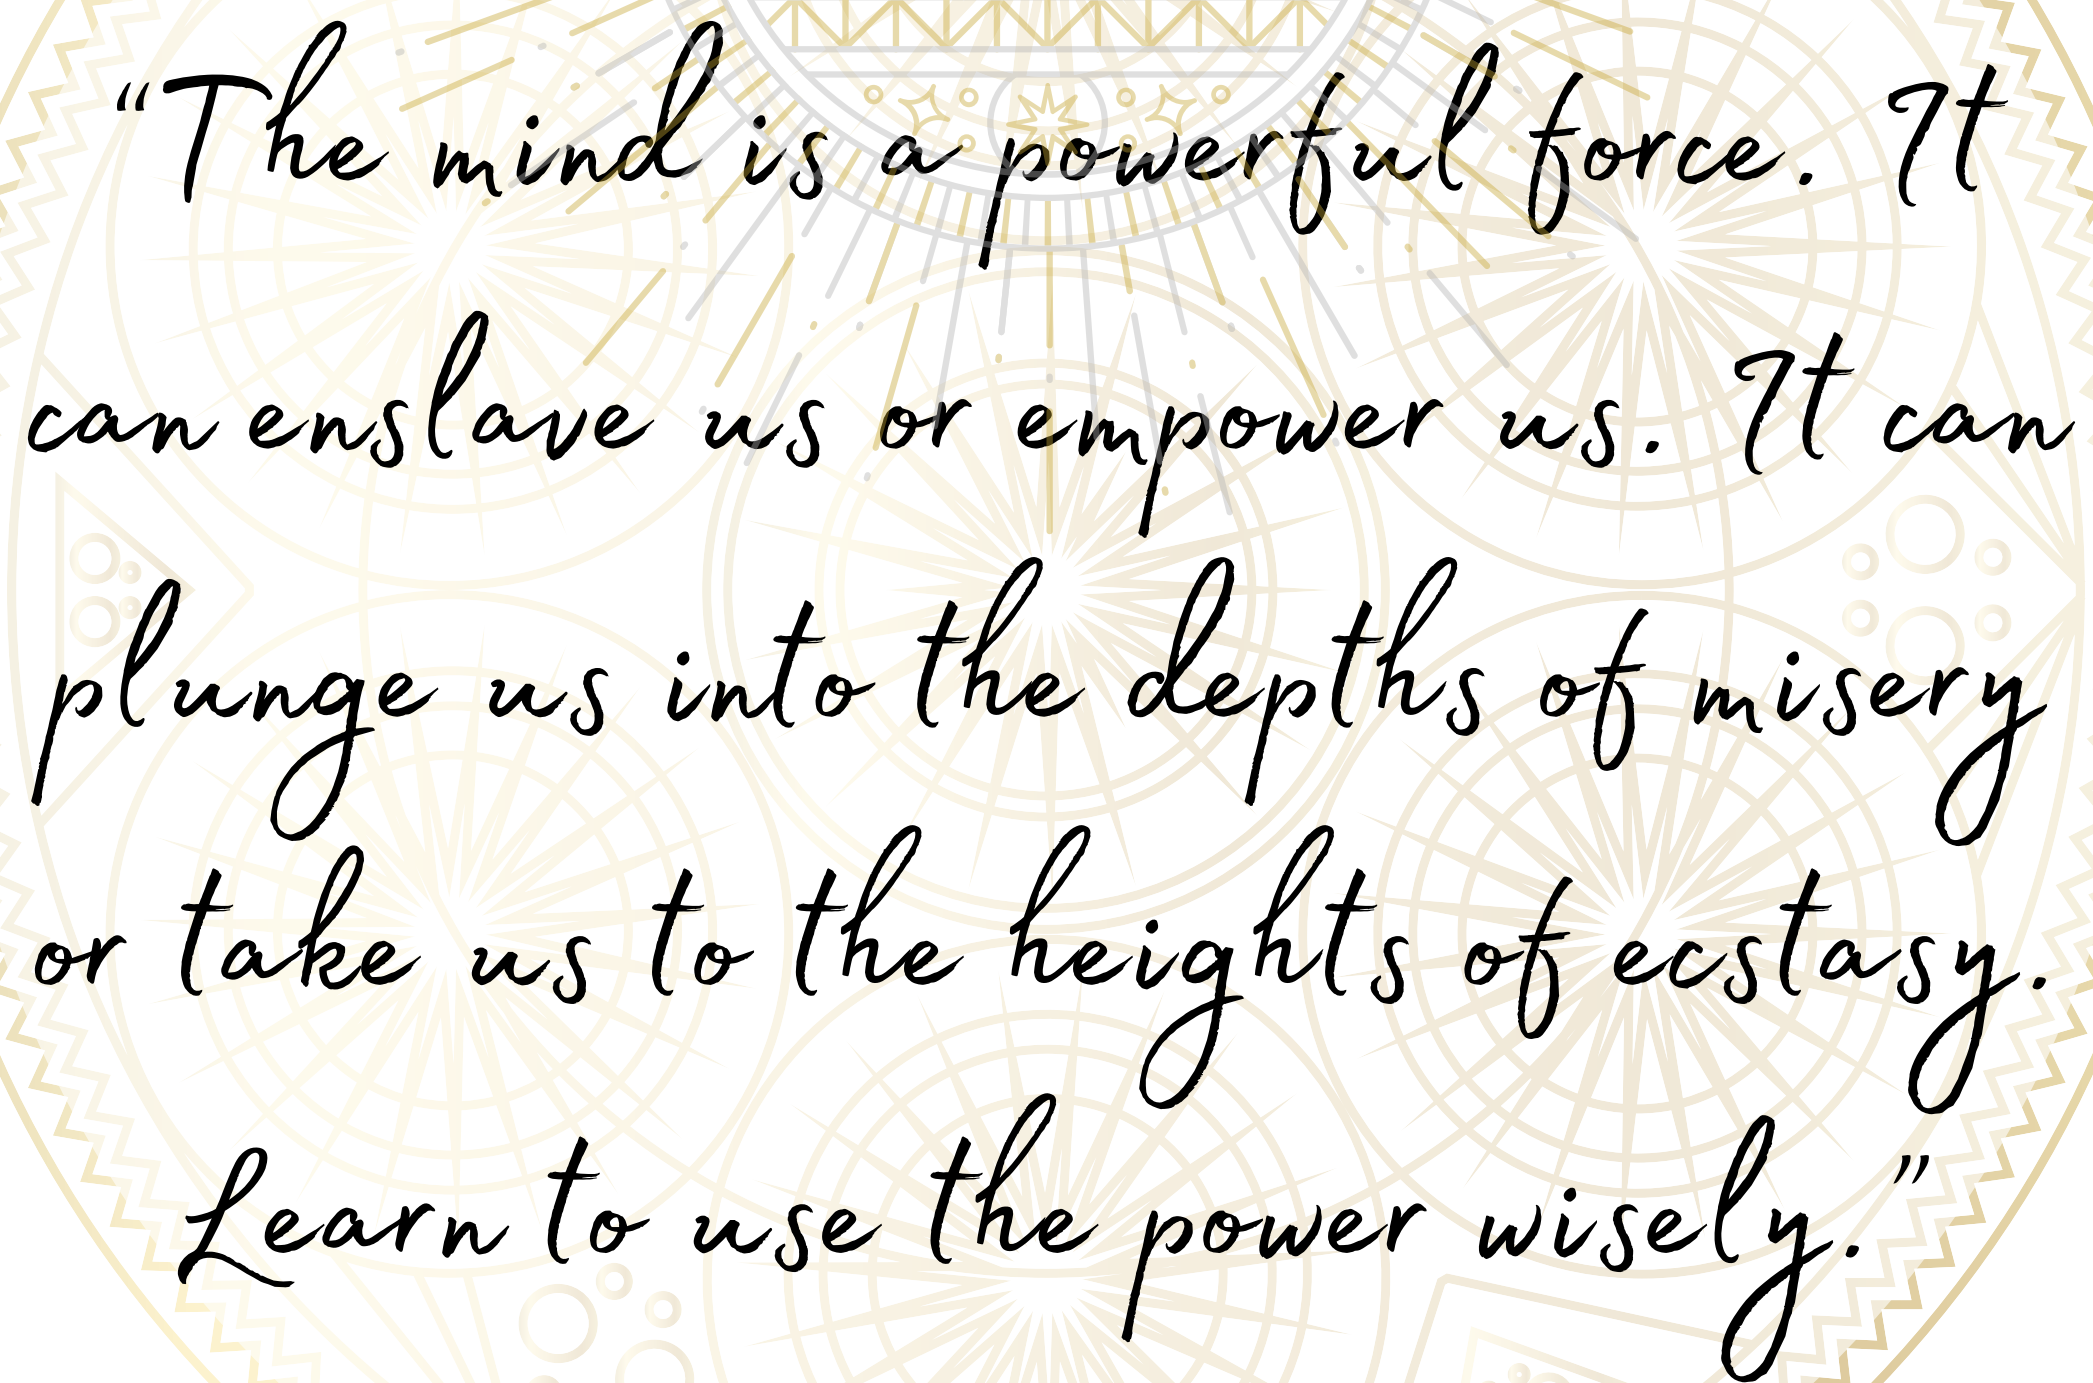 “The mind is a powerful force. It
can enslave us or empower us. It can
plunge us into the depths of misery
or take us to the heights of ecstasy.
Learn to use the power wisely.”